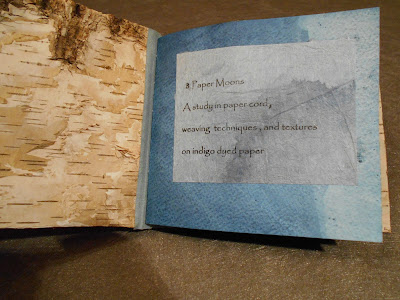 8 Paper Moons
A study in paper cord,
weaving techniques, and textures
on indigo dyed paper